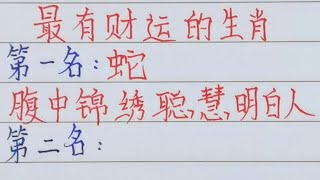 最有财运的生肖
第一名:蛇
腹中锦绣聪慧明白人
第二名: